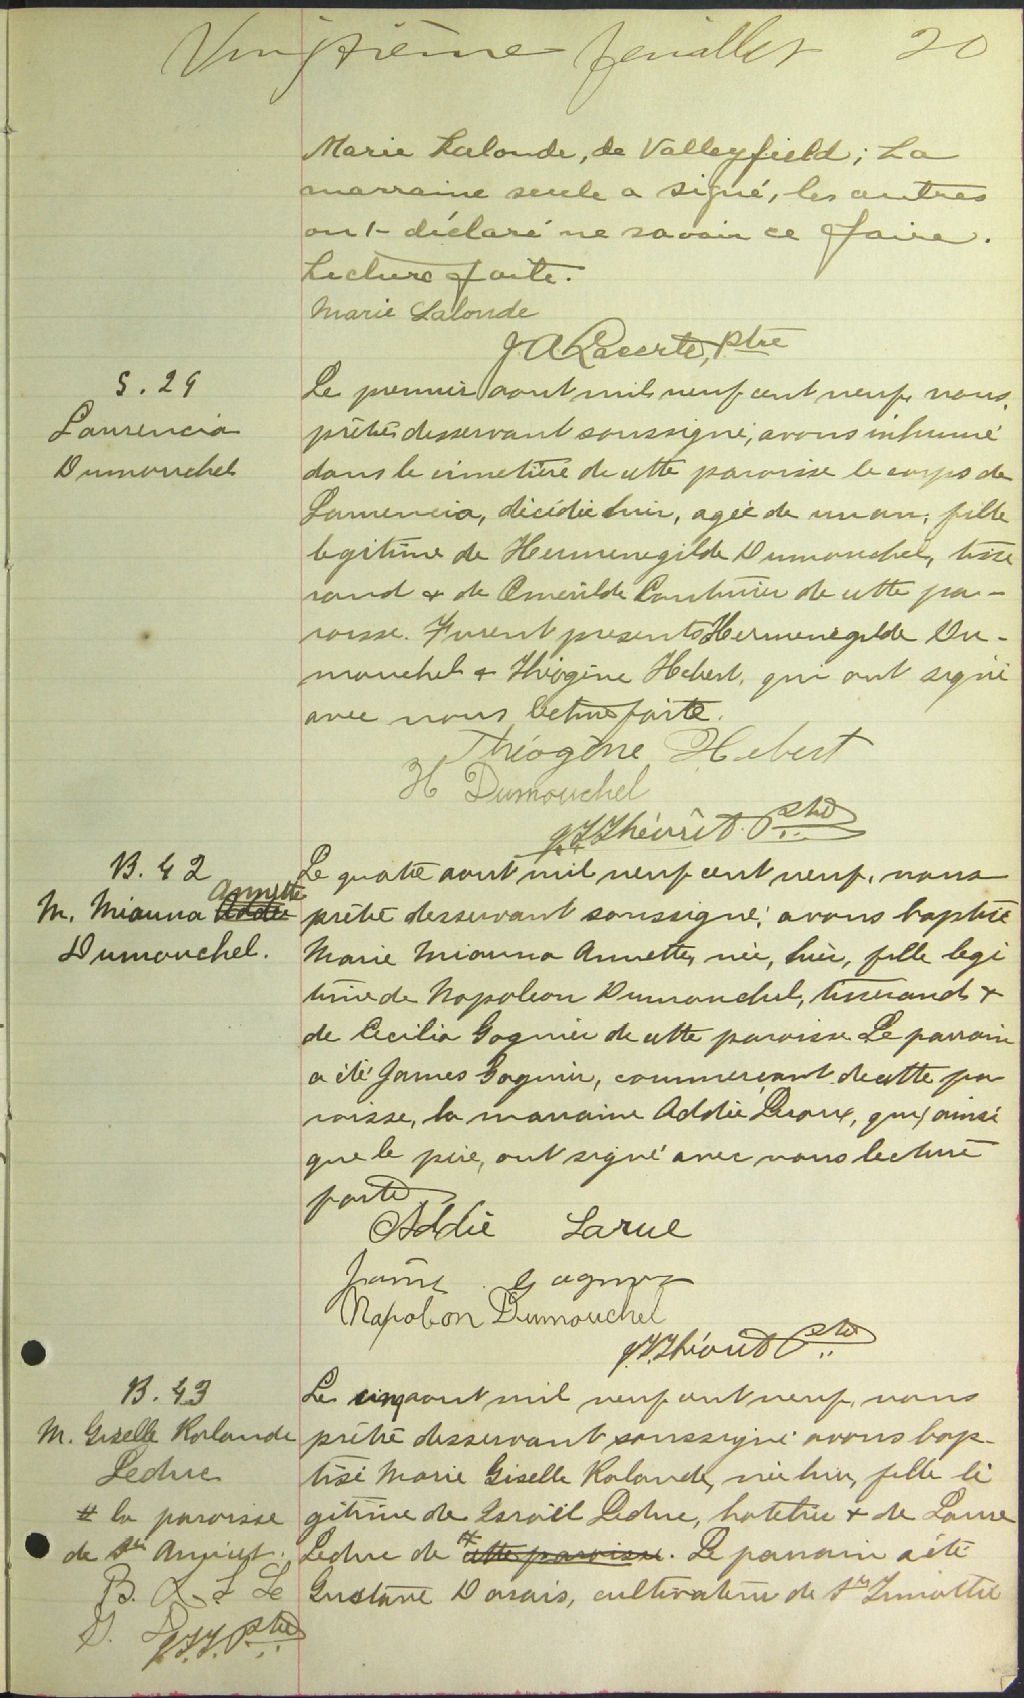 Vingtième feuillet 20
Marie Lalonde, de Valleyfield; La
marraine seule a signé, les autres
ont déclaré ne savoir ce faire.
Lecture faite.
Marie Lalonde
J. A. Lacerte, ptre
S. 29
Laurencia
Dumouchel
Le premier aout mil neuf cent neuf, nous,
prêtre desservant soussigné, avons inhumé
dans le cimetière de cette paroisse le corps de
Laurencia, décédée hier, agée de un an, fille
legitime de Hermenegilde Dumouchel, tisse
rand & de Emérilde Couturier de cette pa-
roisse. Furent presents Hermenegilde Du-
mouchel & Théogène Hebert, qui ont signé
avec nous lecture faite.
Théogène Hebert
H Dumouchel
J. Théorêt Ptre
B. 42
Annette
M. Mianna Addie
Dumouchel.
Le quatre aout mil neuf cent neuf, nous
prêtre desservant soussigné, avons baptisé
Marie Mianna Annette, née, hier, fille legi
time de Napoleon Dumouchel, tisserand &
de Cecilia Gagnier de cette paroisse. Le parrain
a été James Gagnier, commercant de cette pa
roisse, la marraine Addie Leroux, qui, ainsi
que le père, ont signé avec nous lecture
faite
Addie Larue
James Gagnier
Napoleon Dumouchel
J. Théoret Ptre
B. 43
M. Giselle Rolande
Leduc
# la paroisse
de St Anicet.
B. L. L Le
D.
Ptre
Le cinq aout mil neuf cent neuf, nous
prêtre desservant soussigné avons bap-
tisé Marie Giselle Rolande, née hier, fille lé
gitime de Israël Leduc, hotelier & de Laura
Leduc de # cette paroisse. Le parrain a été
Gustave Darais, cultivateur de St Timothée